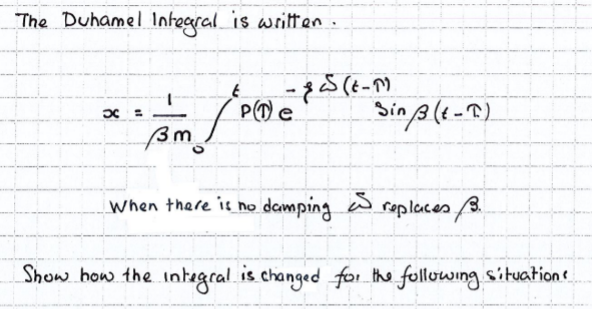 The Duhamel Integral is written.
x = 1/βm ∫₀ᵗ P(τ) e^(-ξω(t-τ)) Sin β(t-τ)
When there is no damping ω replaces β.
Show how the integral is changed for the following situations